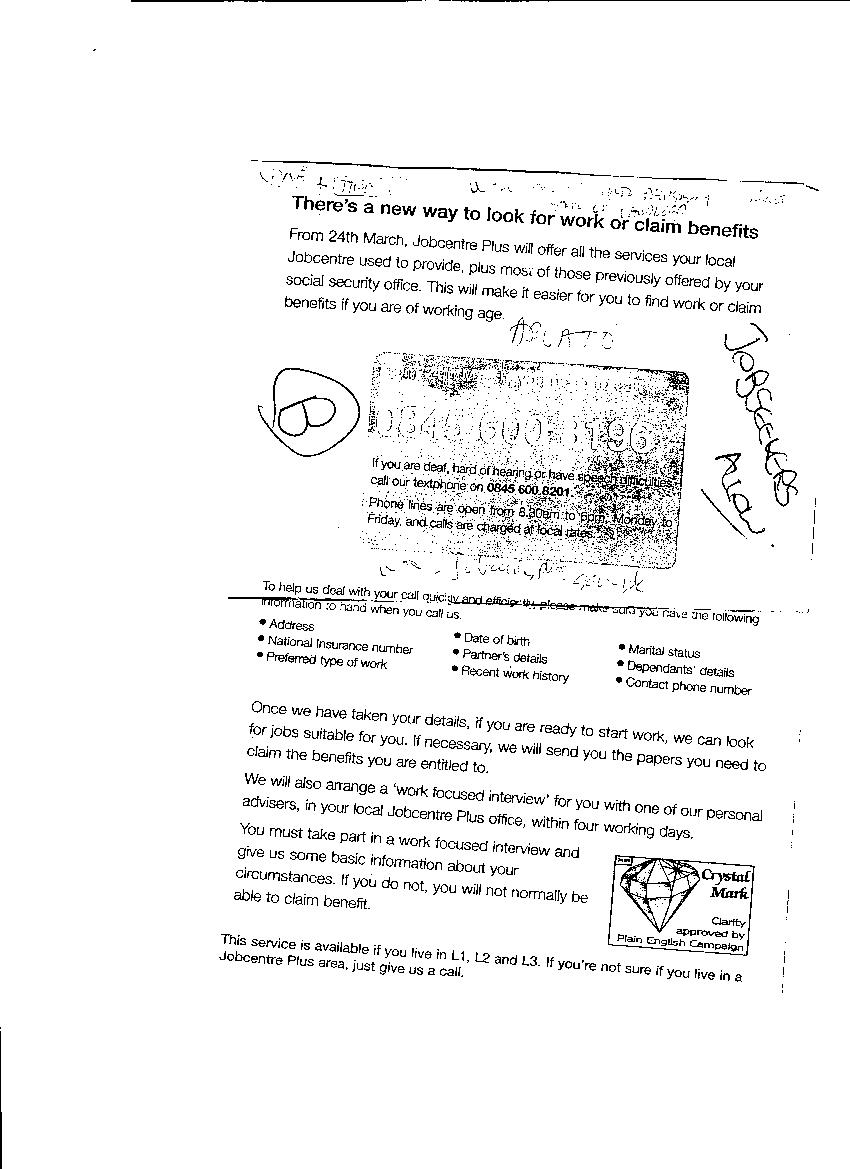 There's a new way to look for work or claim benefits
From 24th March, Jobcentre Plus will offer all the services your local
Jobcentre used to provide, plus most of those previously offered by your
social security office. This will make it easier for you to find work or claim
benefits if you are of working age.
JOBSEEKERS
B
0845 600 8196
If you are deaf, hard of hearing or have speech difficulties,
call our textphone on 0845 600 8201.
Phone lines are open from 8.30am to 6pm, Monday to
Friday, and calls are charged at local rates.
To help us deal with your call quickly and efficiently, please make sure you have the following
information to hand when you call us.
• Address
• National Insurance number
• Preferred type of work
• Date of birth
• Partner's details
• Recent work history
• Marital status
• Dependants' details
• Contact phone number
Once we have taken your details, if you are ready to start work, we can look
for jobs suitable for you. If necessary, we will send you the papers you need to
claim the benefits you are entitled to.
We will also arrange a 'work focused interview' for you with one of our personal
advisers, in your local Jobcentre Plus office, within four working days.
You must take part in a work focused interview and
give us some basic information about your
circumstances. If you do not, you will not normally be
able to claim benefit.
Crystal
Mark
Clarity
approved by
Plain English Campaign
This service is available if you live in L1, L2 and L3. If you're not sure if you live in a
Jobcentre Plus area, just give us a call.